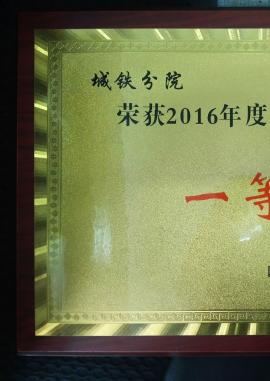 城铁分院
荣获2016年度
一等